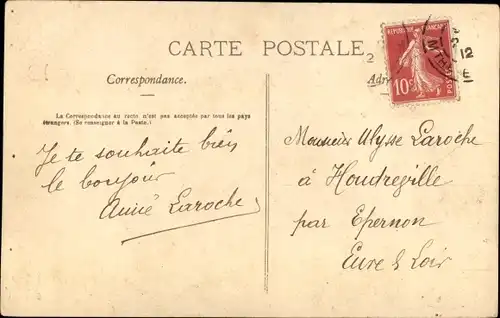 CARTE POSTALE
RÉPUBLIQUE FRANÇAISE
10c
POSTES
12
2
Correspondance.
La Correspondance au recto n'est pas acceptée par tous les pays
étrangers. (Se renseigner à la Poste.)
Je te souhaite bien
le bonjour
Aimé Laroche
Monsieur Ulysse Laroche
à Houdreville
par Epernon
Eure & Loir